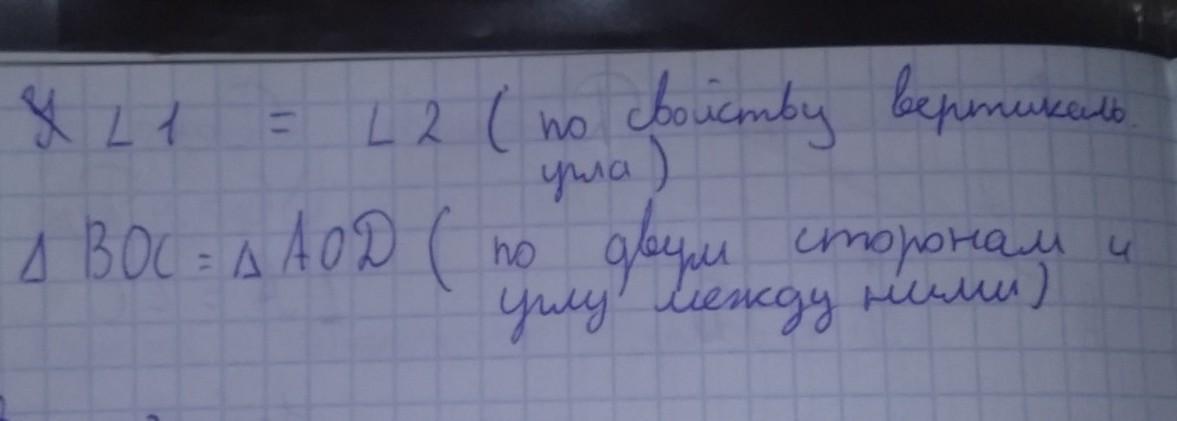 ∠1 = ∠2 ( по свойству вертикаль.
угла)
Δ BOC = Δ AOD ( по двум сторонам и
углу между ними)